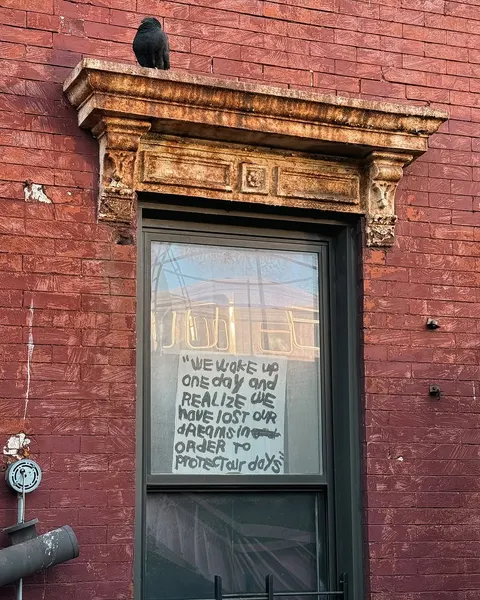 "WE WOKE UP
ONE dAY ANd
REALIZE WE
HAVE LOST OUR
dREAMS IN
ORdER TO
PROTECT OUR dAYS"